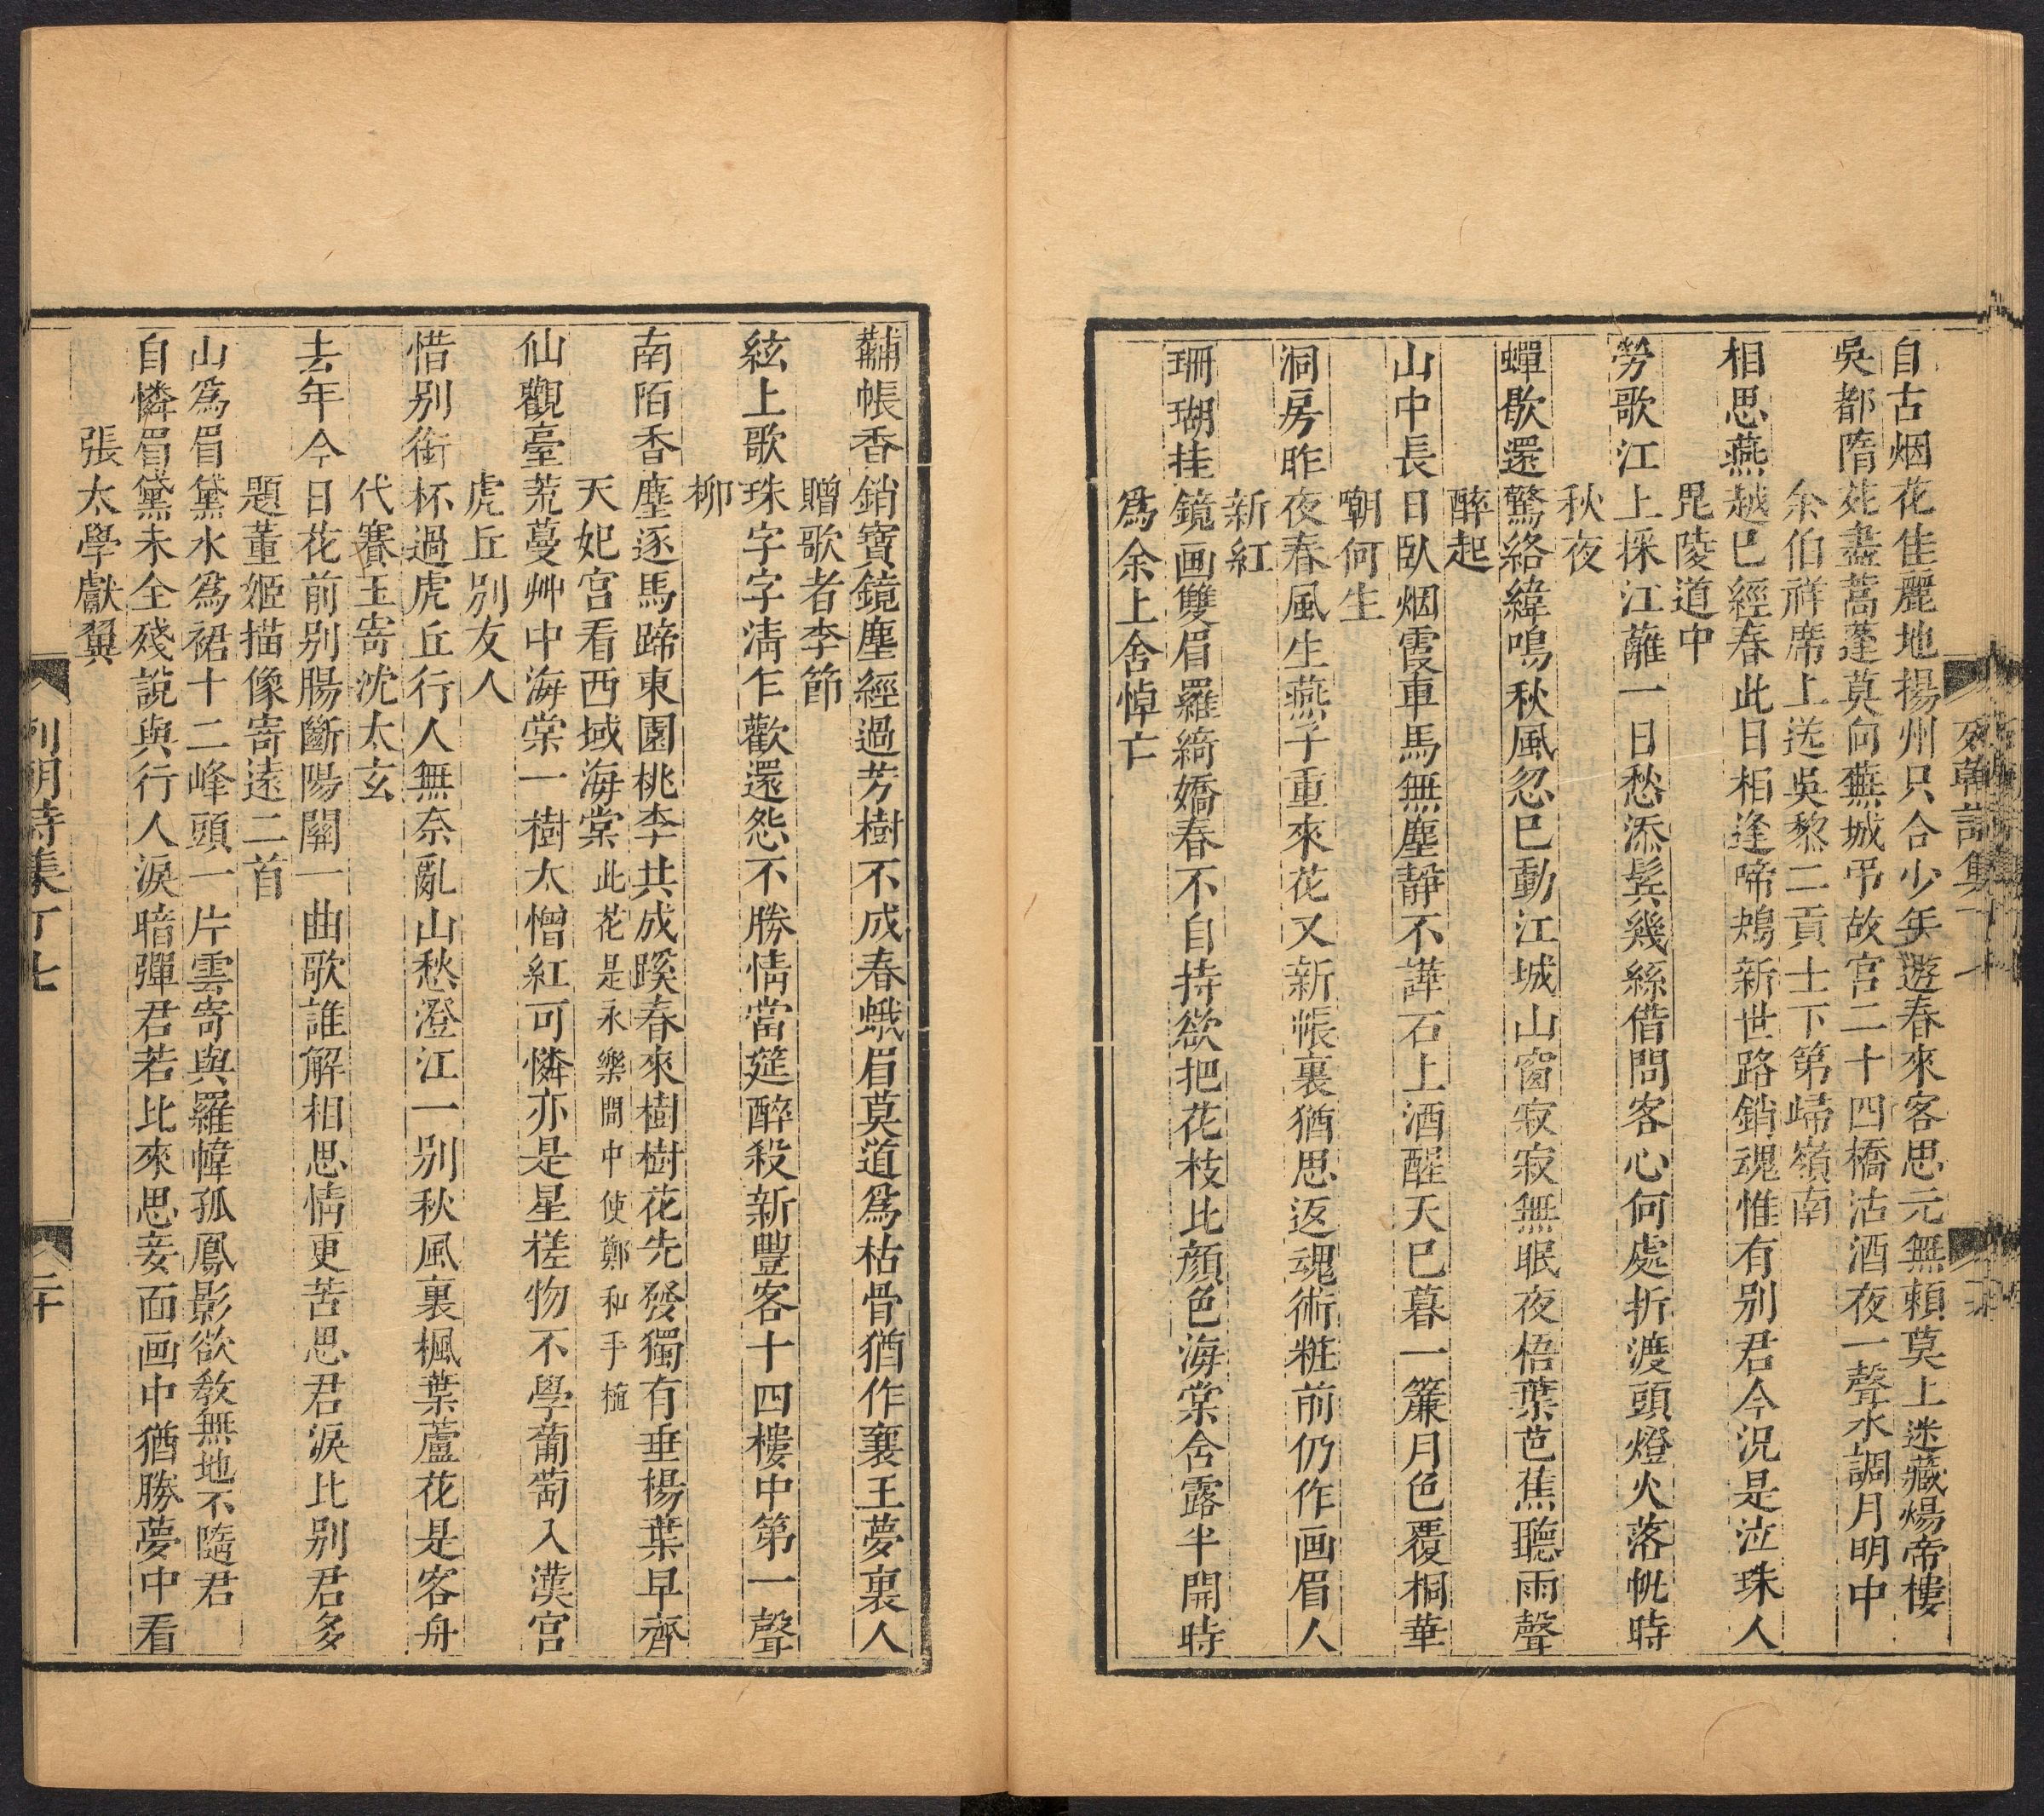 自古烟花佳麗地揚州只合少年遊春來客思元無賴莫上迷藏煬帝樓
吳都隋苑盡蒿蓬莫向蕪城弔故宮二十四橋沽酒夜一聲水調月明中
余伯祥席上送吳黎二貢士下第歸嶺南
相思燕越已經春此日相逢啼鴂新世路銷魂惟有別君今況是泣珠人
毘陵道中
勞歌江上採江蘺一日愁添鬂幾絲借問客心何處折渡頭燈火落帆時
秋夜
蟬歇還驚絡緯鳴秋風忽已動江城山窗寂寂無眠夜梧葉芭蕉聽雨聲
醉起
山中長日臥烟霞車馬無塵靜不譁石上酒醒天已暮一簾月色覆桐華
嘲何生
洞房昨夜春風生燕子重來花又新帳裏猶思返魂術粧前仍作画眉人
新紅
珊瑚挂鏡画雙眉羅綺嬌春不自持欲把花枝比顏色海棠含露半開時
為余上舍悼亡
黼帳香銷寶鏡塵經過芳樹不成春蛾眉莫道為枯骨猶作襄王夢裏人
贈歌者李節
絃上歌珠字字淸乍歡還怨不勝情當筵醉殺新豐客十四樓中第一聲
柳
南陌香塵逐馬蹄東園桃李共成蹊春來樹樹花先發獨有垂楊葉早齊
天妃宮看西域海棠此花是永樂間中使鄭和手植
仙觀臺荒蔓艸中海棠一樹太憎紅可憐亦是星槎物不學葡萄入漢宮
虎丘別友人
惜別銜杯過虎丘行人無奈亂山愁澄江一別秋風裏楓葉蘆花是客舟
代賽玉寄沈太玄
去年今日花前別腸斷陽關一曲歌誰解相思情更苦思君淚比別君多
題董姬描像寄遠二首
山為眉黛水為裙十二峰頭一片雲寄與羅幃孤鳳影欲教無地不隨君
自憐眉黛未全殘說與行人淚暗彈君若比來思妾面画中猶勝夢中看
張太學獻翼
列朝詩集丁七
二十